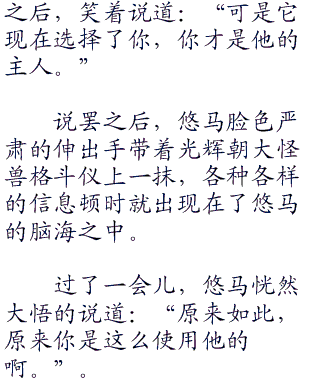 之后，笑着说道：“可是它
现在选择了你，你才是他的
主人。”
说罢之后，悠马脸色严
肃的伸出手带着光辉朝大怪
兽格斗仪上一抹，各种各样
的信息顿时就出现在了悠马
的脑海之中。
过了一会儿，悠马恍然
大悟的说道：“原来如此，
原来你是这么使用他的
啊。”。